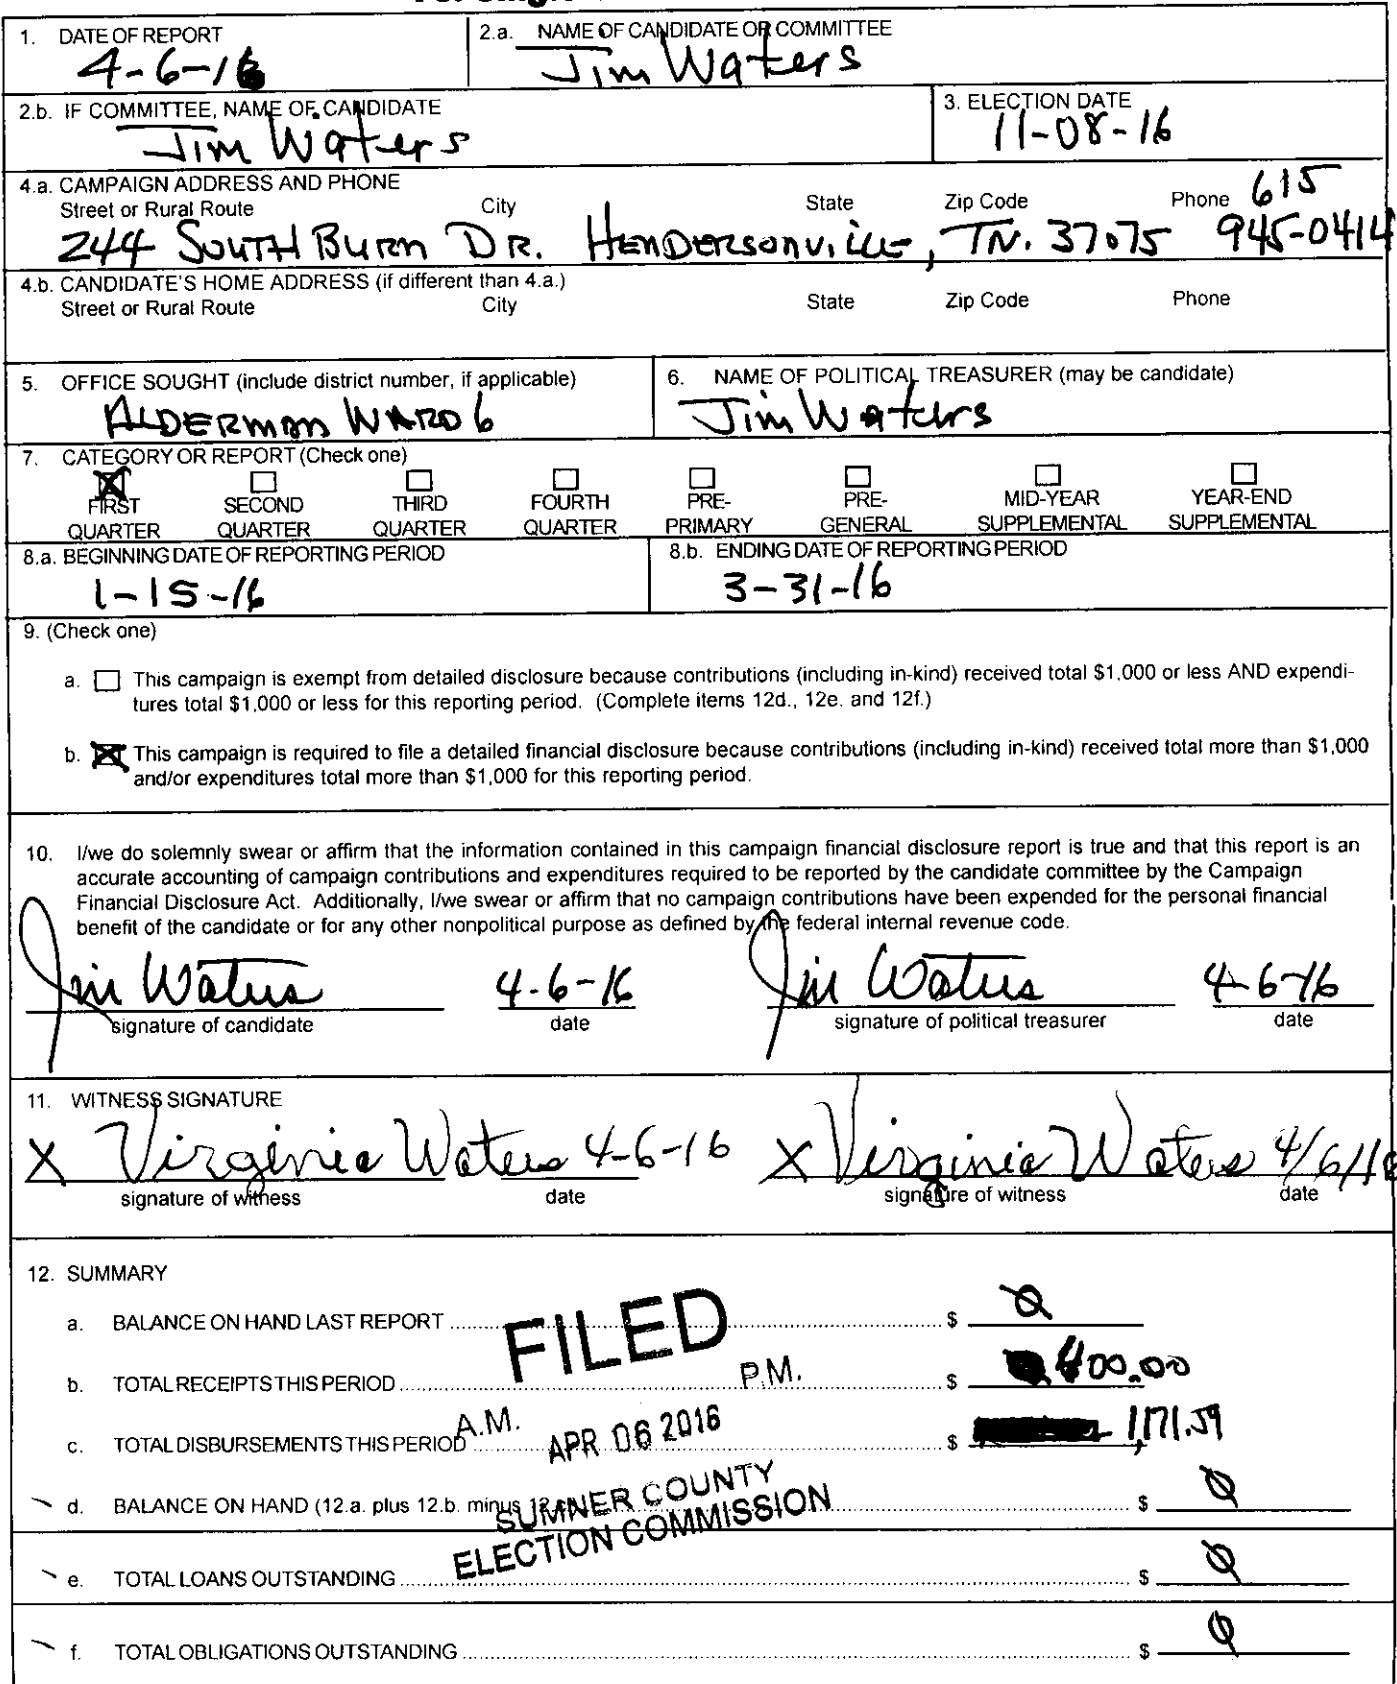 1. DATE OF REPORT
4-6-16
2.a. NAME OF CANDIDATE OR COMMITTEE
Jim Waters
2.b. IF COMMITTEE, NAME OF CANDIDATE
Jim Waters
3. ELECTION DATE
11-08-16
4.a. CAMPAIGN ADDRESS AND PHONE
Street or Rural Route City State Zip Code Phone 615
244 SOUTH BURN DR. HENDERSONVILLE, TN. 37075 945-0414
4.b. CANDIDATE'S HOME ADDRESS (if different than 4.a.)
Street or Rural Route City State Zip Code Phone
5. OFFICE SOUGHT (include district number, if applicable)
ALDERMAN WARD 6
6. NAME OF POLITICAL TREASURER (may be candidate)
Jim Waters
7. CATEGORY OR REPORT (Check one)
FIRST SECOND THIRD FOURTH PRE- PRE- MID-YEAR YEAR-END
QUARTER QUARTER QUARTER QUARTER PRIMARY GENERAL SUPPLEMENTAL SUPPLEMENTAL
8.a. BEGINNING DATE OF REPORTING PERIOD
1-15-16
8.b. ENDING DATE OF REPORTING PERIOD
3-31-16
9. (Check one)
a. This campaign is exempt from detailed disclosure because contributions (including in-kind) received total $1,000 or less AND expendi-
tures total $1,000 or less for this reporting period. (Complete items 12d., 12e. and 12f.)
b. This campaign is required to file a detailed financial disclosure because contributions (including in-kind) received total more than $1,000
and/or expenditures total more than $1,000 for this reporting period.
10. I/we do solemnly swear or affirm that the information contained in this campaign financial disclosure report is true and that this report is an
accurate accounting of campaign contributions and expenditures required to be reported by the candidate committee by the Campaign
Financial Disclosure Act. Additionally, I/we swear or affirm that no campaign contributions have been expended for the personal financial
benefit of the candidate or for any other nonpolitical purpose as defined by the federal internal revenue code.
Jim Waters 4-6-16 Jim Waters 4-6-16
signature of candidate date signature of political treasurer date
11. WITNESS SIGNATURE
X Virginia Waters 4-6-16 X Virginia Waters 4/6/16
signature of witness date signature of witness date
12. SUMMARY
a. BALANCE ON HAND LAST REPORT $ 0
FILED
b. TOTAL RECEIPTS THIS PERIOD $ 400.00
A.M. P.M.
c. TOTAL DISBURSEMENTS THIS PERIOD $ 1,171.59
APR 06 2016
d. BALANCE ON HAND (12.a. plus 12.b. minus $ 0
SUMNER COUNTY
ELECTION COMMISSION
e. TOTAL LOANS OUTSTANDING $ 0
f. TOTAL OBLIGATIONS OUTSTANDING $ 0